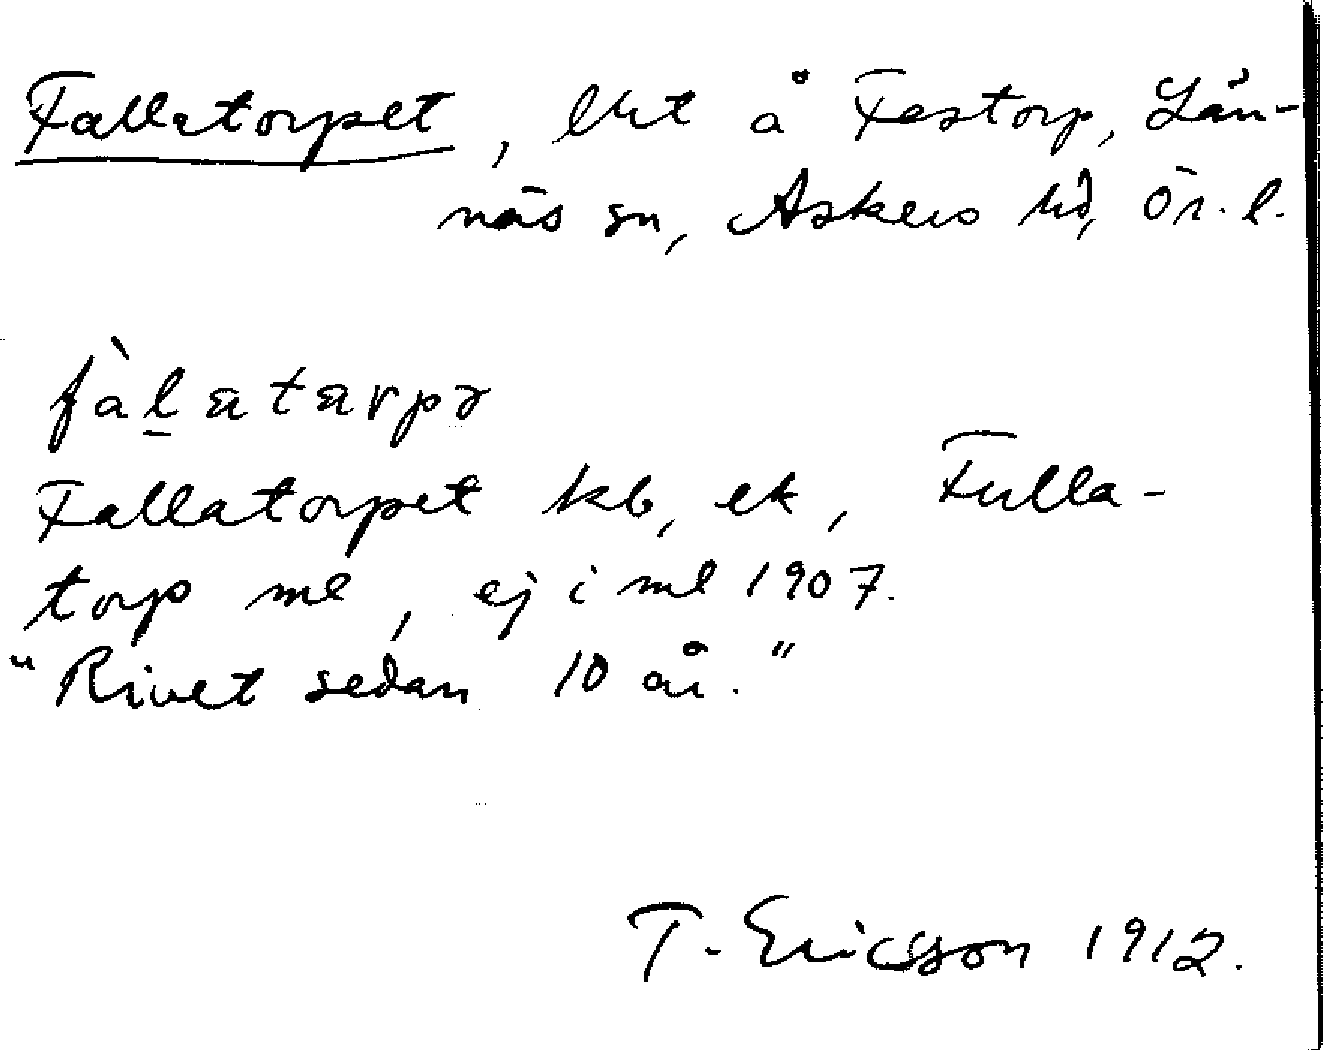 Fallatorpet, lht å Festorp, Län-
näs sn, Askers hd, Ör. l.
fàl̠atarpə
Fallatorpet kb, ek, Fulla-
torp ml, ej i ml 1907.
"Rivet sedan 10 år."
T. Ericsson 1912.